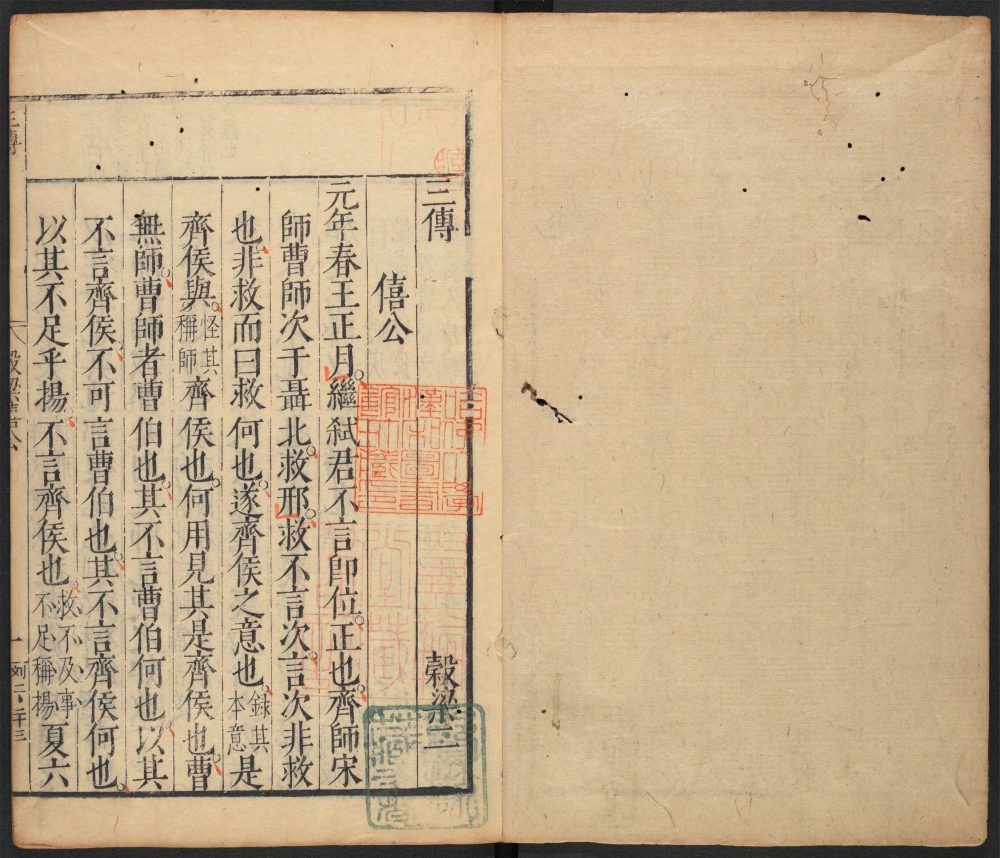 三傳 穀梁二
僖公
元年春王正月繼弒君不言卽位正也齊師宋
師曹師次于聶北救邢救不言次言次非救
也非救而曰救何也遂齊侯之意也錄其本意是
齊侯與怪其稱師齊侯也何用見其是齊侯也曹
無師曹師者曹伯也其不言曹伯何也以其
不言齊侯不可言曹伯也其不言齊侯何也
以其不足乎揚不言齊侯也救不及事不足稱揚夏六
三傳